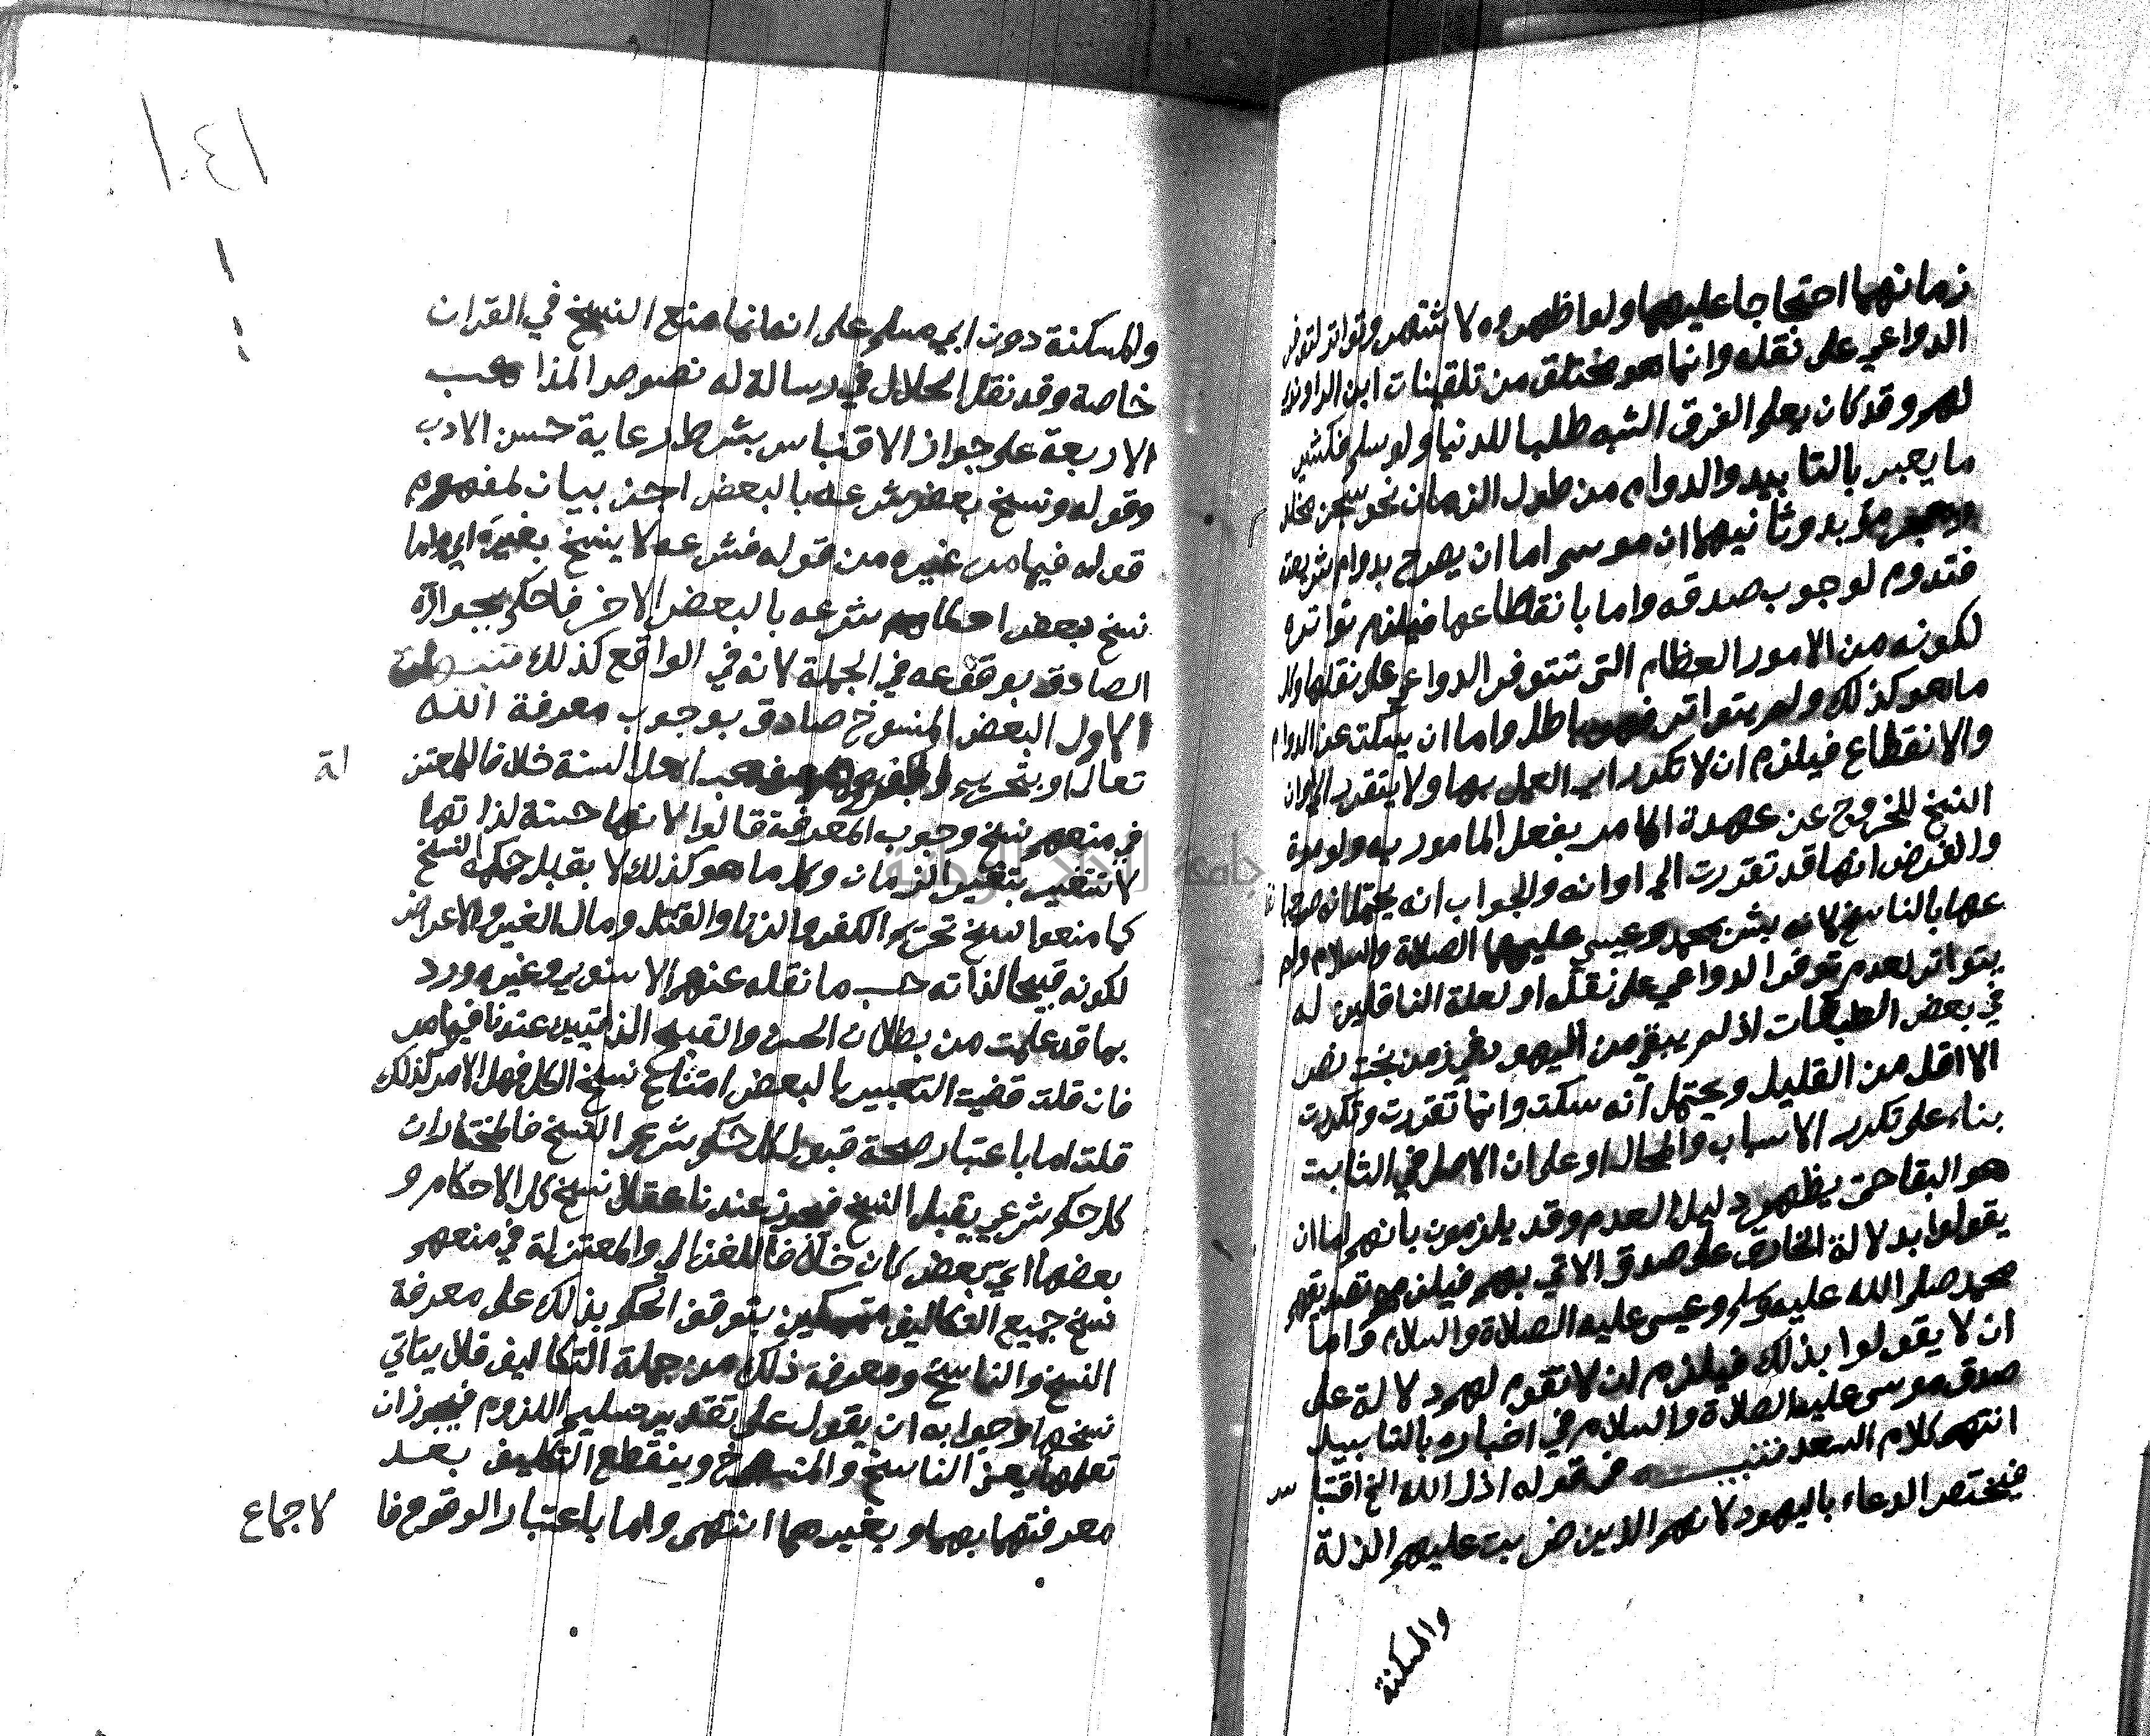 زمانهما احتجاجا عليهما ولو اظهروه لاشتهر وتواتر لتوفر
الدواعي على نقله وانما هو مختلق من تلقينات ابن الراوندي
لهم وقد كان يعلم الفرق الشبه طلبا للدنيا ولو سلم فكثير
ما يعبر بالتابيد والدوام من طول الزمان نحو سجن مخلد
مؤبد وثانيهما ان موسى اما ان يصرح بدوام شريعته
فتدوم لوجوب صدقه واما بانقطاعها فيلزم تواتره
لكونه من الامور العظام التي تتوفر الدواعي على نقلها وكل
ما هو كذلك ولم يتواتر فهو باطل واما ان يسكت عن الدوام
والانقطاع فيلزم ان لا تكرر اي العمل بها ولا يتقرر الى اوان
النسخ للخروج عن عهدة الامر بفعل المامور به ولو مرة
والفرض انها قد تقررت الى اوانه والجواب انه يحتمل انه صرح
عها بالناسخ لانه بشر بمحمد وعيسى عليهما الصلاة والسلام ولم
يتواتر لعدم توفر الدواعي على نقله او لعلة الناقلين له
في بعض الطبقات اذ لم يبق من اليهود في زمن بخت نصر
الا اقل من القليل ويحتمل انه سكت وانما تقررت وتكررت
بناء على تكرر الاسباب والمحال او على ان الاصل في الثابت
هو البقا حتى يظهر دليل العدم وقد يلزمون بانهم اما ان
يقولوا بدلالة الخارق على صدق الاتي به فيلزمهم تصديقهم
محمد صلى الله عليه وسلم وعيسى عليه الصلاة والسلام واما
ان لا يقولوا بذلك فيلزم ان لا تقوم لهم دلالة على
صدق موسى عليه الصلاة والسلام في اخباره بالتابيد
انتهى كلام السعد تنبيه في قوله اذل الله الخ اقتباس
فيختص الدعاء باليهود لانهم الذين ضربت عليهم الذلة
والمسكنة
١٤٠١
والمسكنة دون ابي مسلم على انه انما منع النسخ في القران
خاصة وقد نقل الجلال في رسالة له نصوص المذاهب
الاربعة على جواز الاقتباس بشرط رعاية حسن الادب
وقوله ونسخ بعض شرعه بالبعض اجز بيان لمفهوم
قوله فيما مر غيره من قوله فشرعه لا ينسخ بغيره اي واما
نسخ بعض احكام شرعه بالبعض الاخر فاحكم بجوازه
الصادق بوقوعه في الجملة لانه في الواقع كذلك
الاول البعض المنسوخ صادق بوجوب معرفة الله
تعالى او بتحريم الكفر وهو مذهب اهل السنة خلافا للمعتز لة
في منعهم نسخ وجوب المعرفة قالوا لانها حسنة لذاتها
لا تتغير بتغير الزمان وكل ما هو كذلك لا يقبل حكمه النسخ
كما منعوا نسخ تحريم الكفر والزنا والقتل ومال الغير والاعراض
لكونه قبيحا لذاته حسب ما نقله عنهم الاسنوي وغيره ورد
بما قد علمت من بطلان الحسن والقبح الذاتيين عندنا فيما مر
فان قلت قضية التعبير بالبعض امتناع نسخ الكل فهل الامر كذلك
قلت اما باعتبار صحة قبول كل حكم شرعي النسخ فالمختار ان
كل حكم شرعي يقبل النسخ فيجوز عندنا عقلا نسخ كل الاحكام و
بعضها اي بعض كان خلافا للغزالي والمعتزلة في منعهم
نسخ جميع التكاليف متمسكين بتوقف الحكم بذلك على معرفة
النسخ والناسخ ومعرفة ذلك من جملة التكاليف فلا يتاتي
نسخها وجوابه ان يقول على تقدير تسليم اللزوم فيجوز ان
تعلمها يعني الناسخ والمنسوخ وينقطع التكليف بعد
معرفتهما بهما وبغيرهما انتهى واما باعتبار الوقوع فا لاجماع